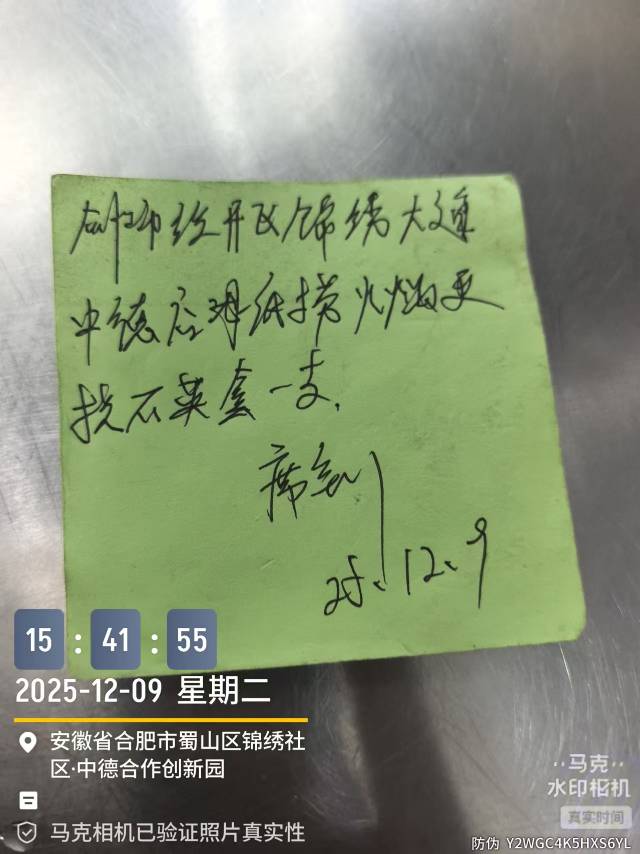 经开区锦绣大道
中德
换石英套一支.
25.12.9
15:41:55
2025-12-09 星期二
安徽省合肥市蜀山区锦绣社
区·中德合作创新园
马克相机已验证照片真实性
马克
水印相机
真实时间
防伪 Y2WGC4K5HXS6YL